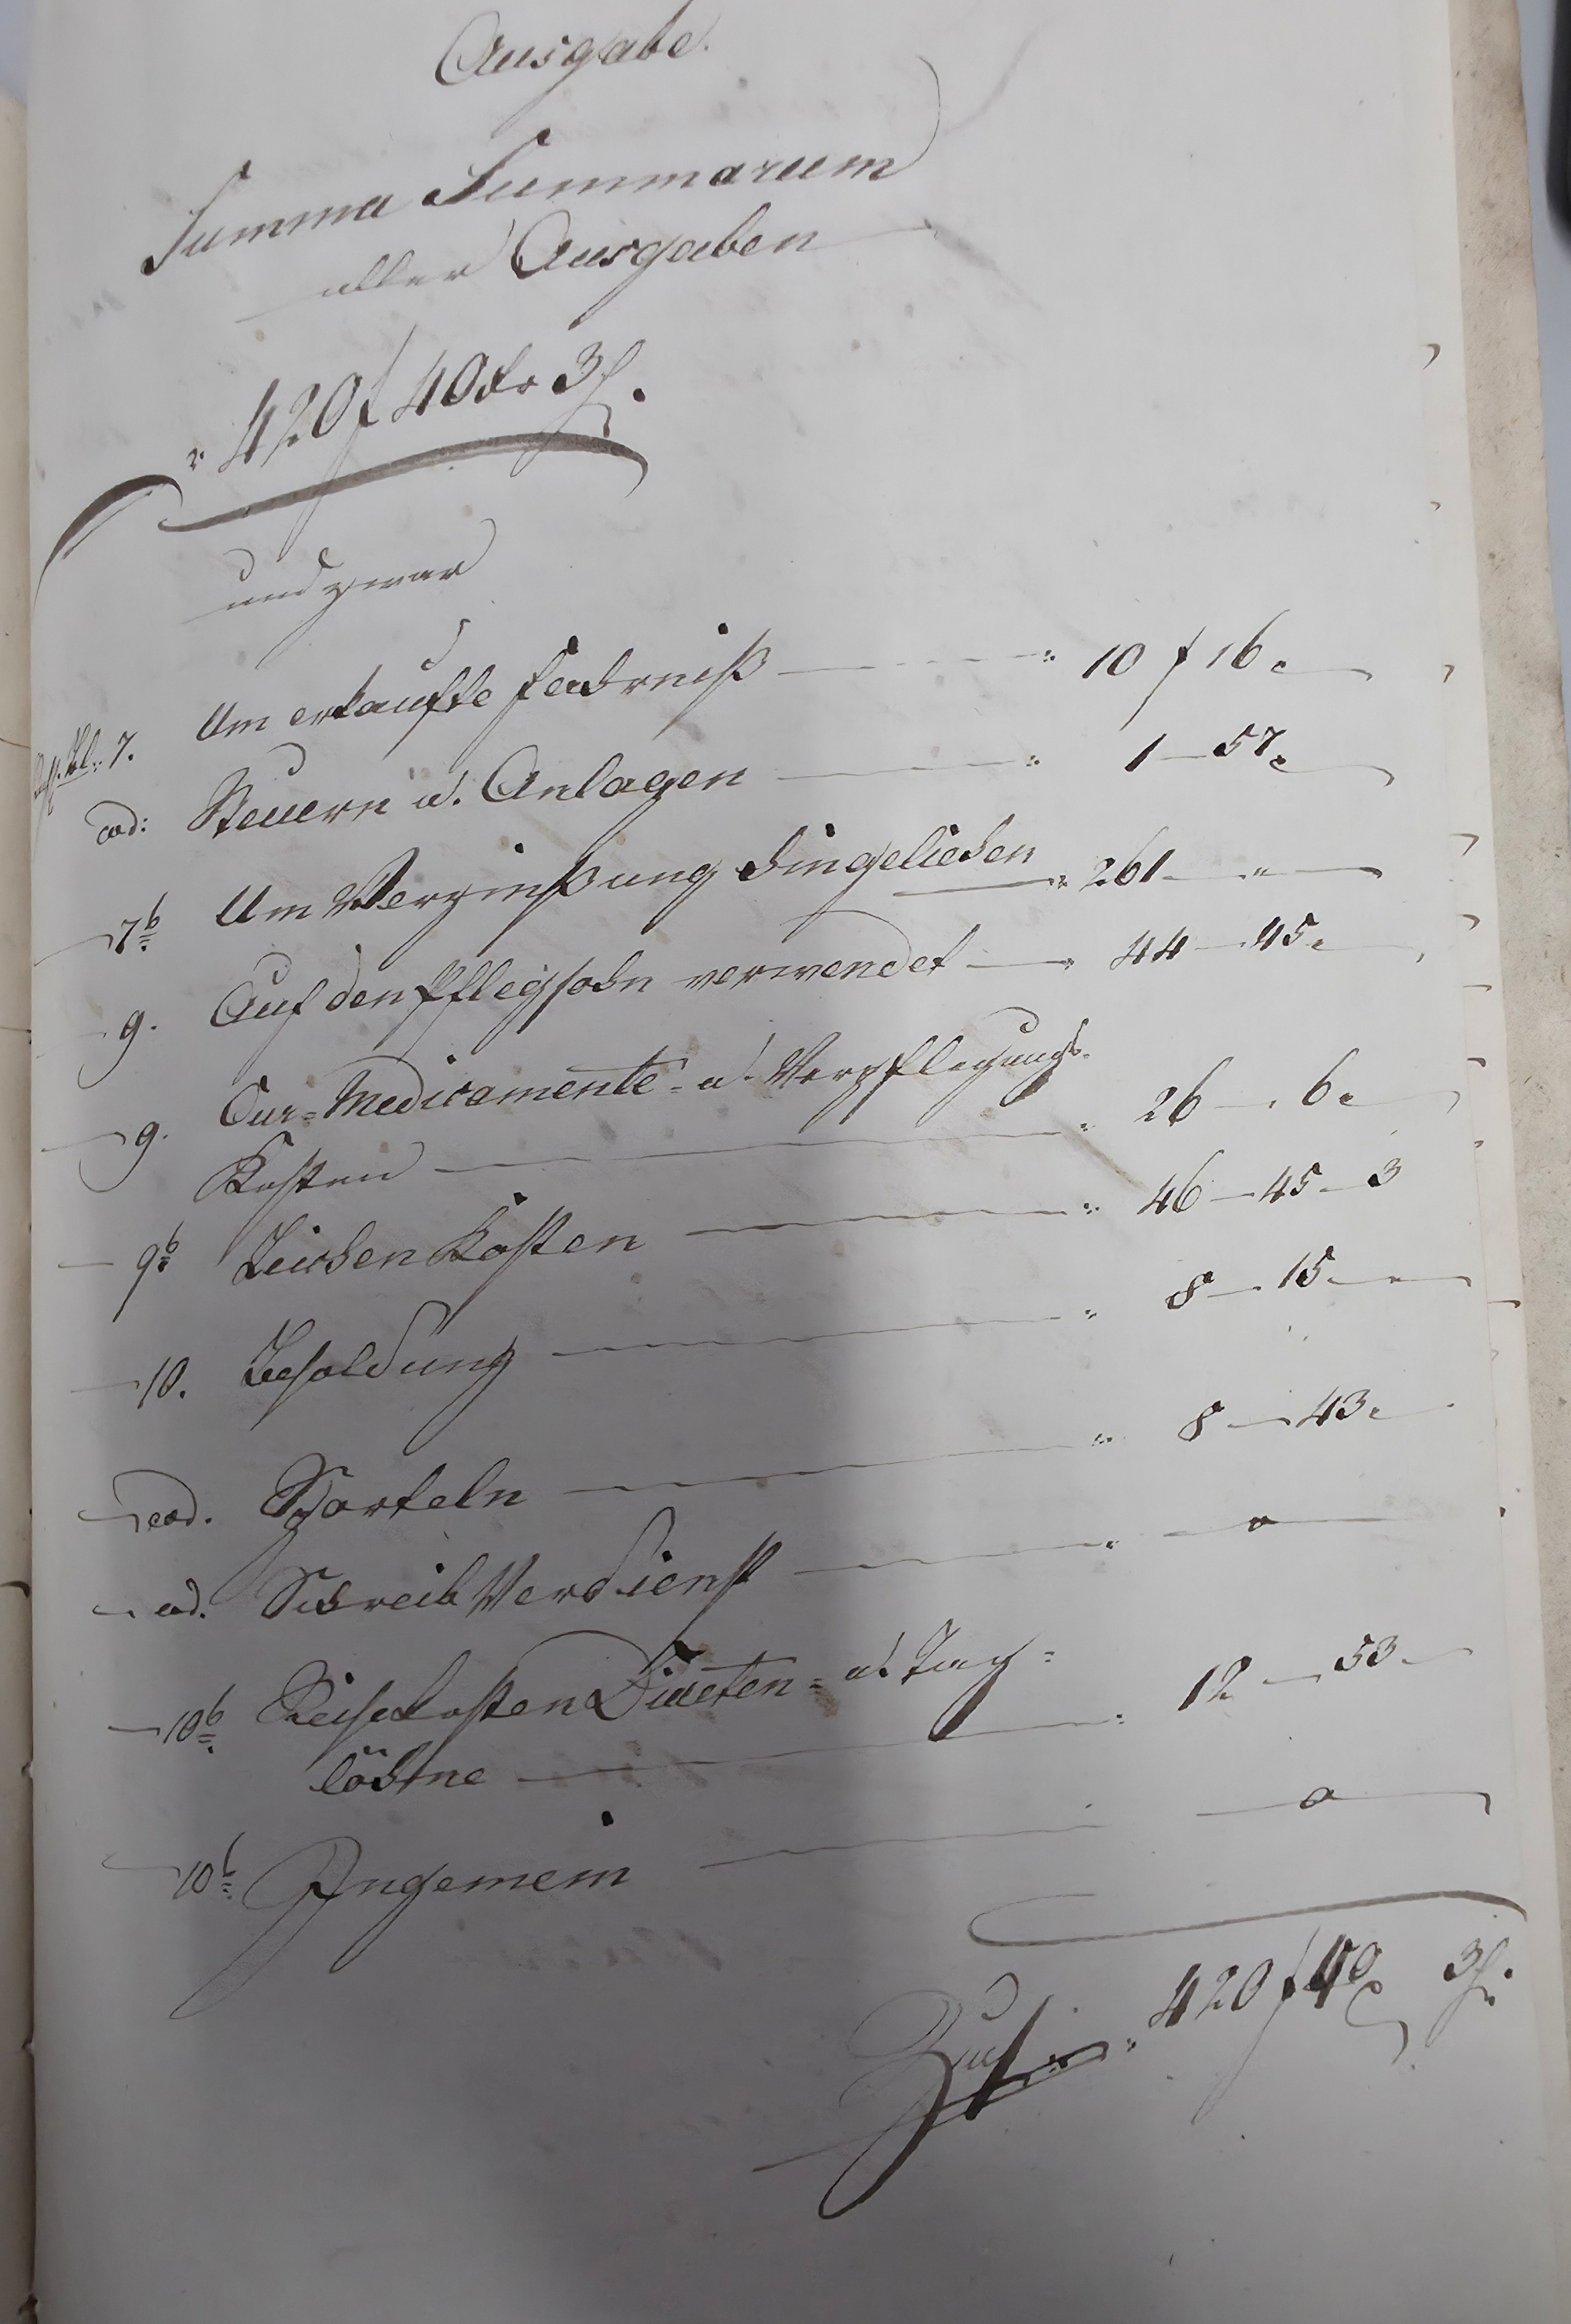 Ausgabe.
Summa Summarum
aller Ausgaben
420 f 40 kr 3 h.
und zwar
bl. 7. Um erkaufte Fahrniß — 10 f 16.
eod: Steuern u. Anlagen — 1 — 57.
7b Um Verzinßung hingeliehen — 261 — "
9. Auf den Pflegsohn verwendet — 44 — 45.
9. Cur- Medicamente- u. Verpflegungs-
Kosten — 26 — 6.
9b Leichen Kosten — 46 — 45 — 3
10. Besoldung — 8 — 15.
eod. Sporteln — 8 — 43.
eod. Schreib Verdienst — o —
10b Reisekosten Diaeten- u. Tag-
löhne — 12 — 53
10b Ingemein — o —
420 f 40 3 h.